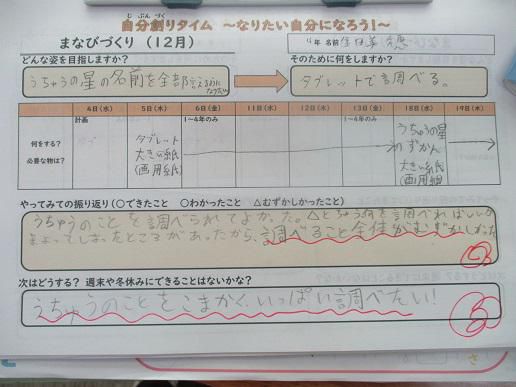 じ ぶん づく
自分創りタイム ～なりたい自分になろう！～
まなびづくり（12月）
4年 名前
どんな姿を目指しますか？
そのために何をしますか？
うちゅうの星の名前を全部言えるようになりたい
タブレットで調べる。
4日（水） 5日（木） 6日（金） 11日（水） 12日（木） 13日（金） 18日（水） 19日（木）
計画 1～4年のみ 1～4年のみ
何をする？
必要な物は？
タブレット
大きい紙
（画用紙）
うちゅうの星
のずかん
大きい紙
（画用紙）
やってみての振り返り（〇できたこと 〇わかったこと △むずかしかったこと）
うちゅうのことを調べられてよかった。△とちゅう何を調べればいいか
まよってしまったところがあったから、調べること全体がむずかしかった
次はどうする？ 週末や冬休みにできることはないかな？
うちゅうのことをこまかく、いっぱい調べたい！